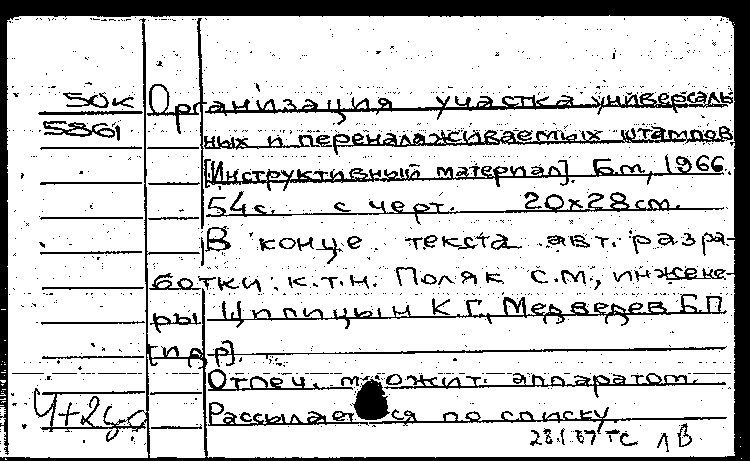 50к Организация участка универсаль-
5861 ных и переналаживаемых штампов
[Инструктивный материал]. Б.м., 1966.
54с. с черт. 20х28см.
В конце текста авт. разра-
ботки: к.т.н. Поляк С.М., инжене-
ры Ципицын К.Г., Медведев Б.П.
[и др].
Отпеч. множит. аппаратом.
Рассылается по списку
28.1.67 ТС ЛВ